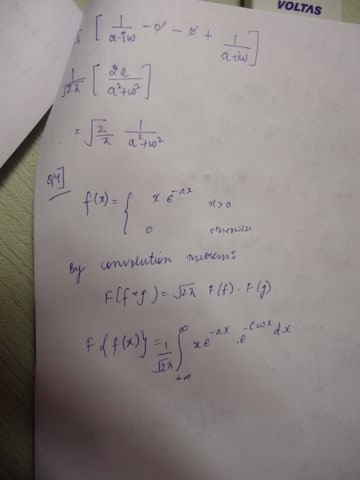 VOLTAS
[ 1/(a-iω) - 0 - 0 + 1/(a+iω) ]
1/√2π [ 2a/(a²+ω²) ]
= √(2/π) 1/(a²+ω²)
Q4]
f(x) = { x e^-ax x>0
0 otherwise
By convolution theorem:
F(f*g) = √2π F(f) . F(g).
F{f(x)} = 1/√2π ∫_-∞^∞ x e^-ax . e^-iωx dx.